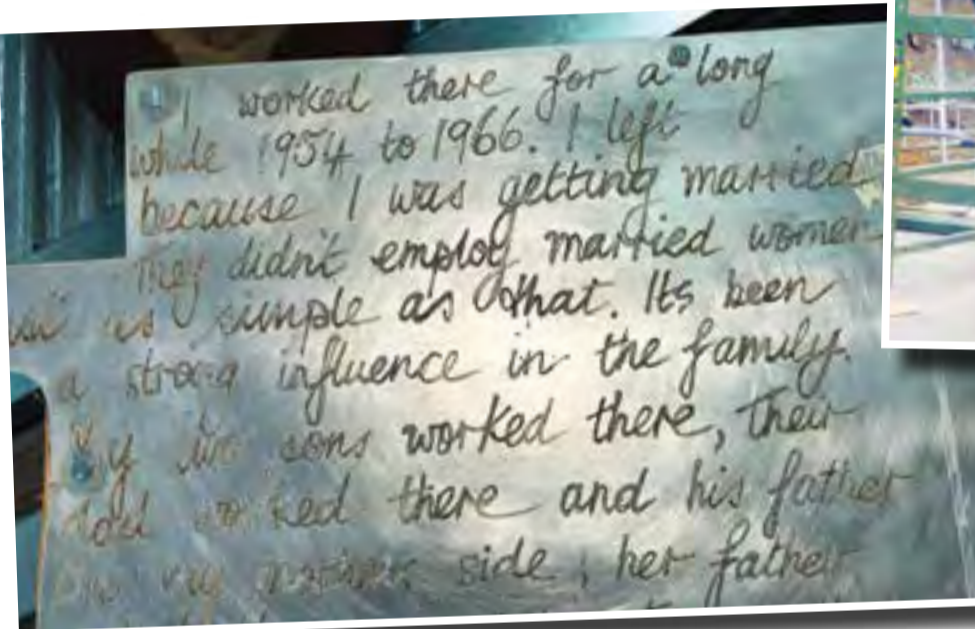 I worked there for a long
while 1954 to 1966. I left
because I was getting married
They didn't employ married women
as simple as that. Its been
a strong influence in the family.
My two sons worked there, Their
dad worked there and his father
On my mothers side, her father